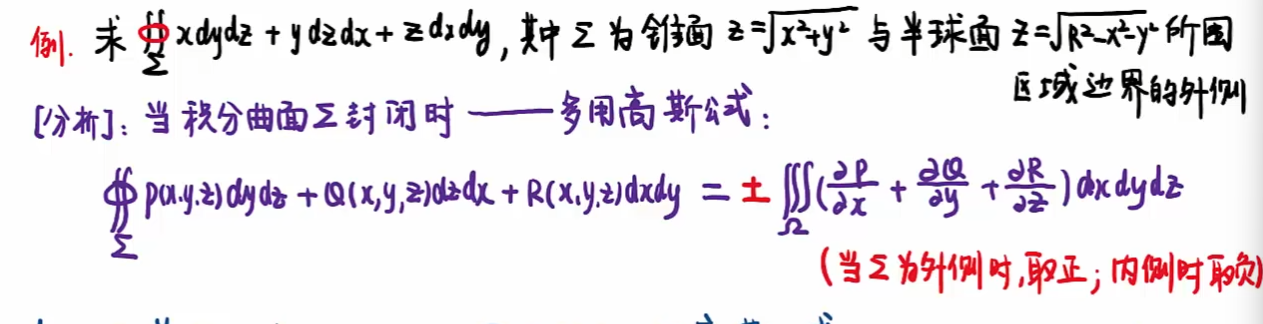 例. 求 ∯_Σ xdydz + ydzdx + zdxdy, 其中 Σ 为锥面 z=√(x²+y²) 与半球面 z=√(R²-x²-y²) 所围
区域边界的外侧
[分析]: 当积分曲面Σ封闭时 —— 多用高斯公式:
∯_Σ P(x,y,z)dydz + Q(x,y,z)dzdx + R(x,y,z)dxdy = ± ∭_Ω (∂P/∂x + ∂Q/∂y + ∂R/∂z) dxdydz
(当Σ为外侧时,取正; 内侧时取负)